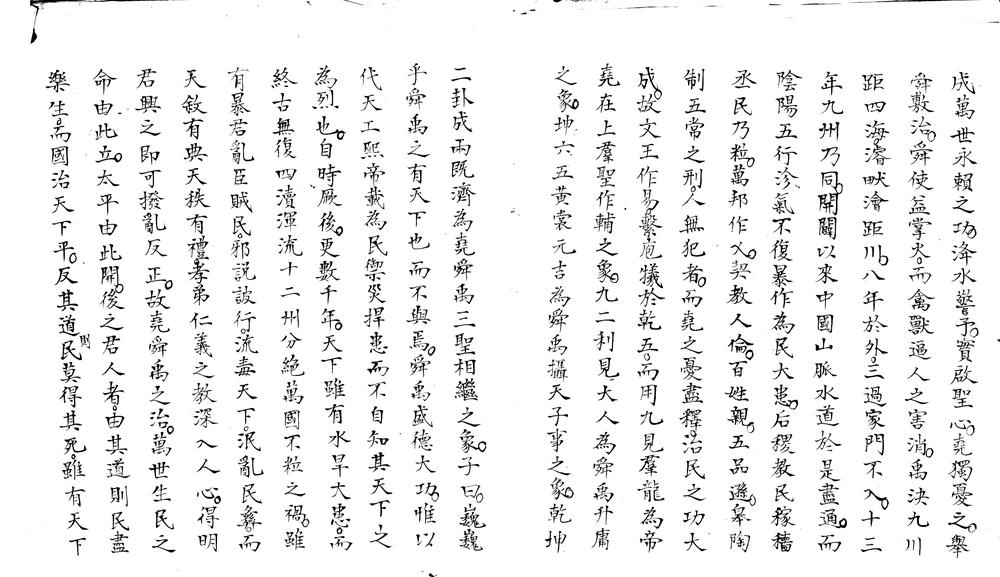 成萬世永賴之功。洚水警予。實啟聖心。堯獨憂之。舉
舜敷治。舜使益掌火。而禽獸逼人之害消。禹決九川
距四海。濬畎澮距川。八年於外。三過家門不入。十三
年九州乃同。開闢以來中國山脈水道於是盡通。而
陰陽五行沴氣不復暴作為民大患。后稷教民稼穡
丞民乃粒。萬邦作乂。契教人倫。百姓親。五品遜。皋陶
制五常之刑。人無犯者。而堯之憂盡釋。治民之功大
成。故文王作易。繫庖犧於乾五。而用九見羣龍為帝
堯在上羣聖作輔之象。九二利見大人為舜禹升庸
之象。坤六五黃裳元吉為舜禹攝天子事之象。乾坤
二卦成兩既濟為堯舜禹三聖相繼之象。子曰。巍巍
乎舜禹之有天下也而不與焉。舜禹盛德大功。惟以
代天工熙帝載為民禦災捍患而不自知其天下之
為烈也。自時厥後。更數千年。天下雖有水旱大患。而
終古無復四瀆渾流十二州分絕萬國不粒之禍。雖
有暴君亂臣賊民。邪說詖行。流毒天下。泯亂民彝。而
天敘有典天秩有禮。孝弟仁義之教深入人心。得明
君興之即可撥亂反正。故堯舜禹之治。萬世生民之
命由此立。太平由此開。後之君人者。由其道則民盡
樂生。而國治天下平。反其道則民莫得其死。雖有天下